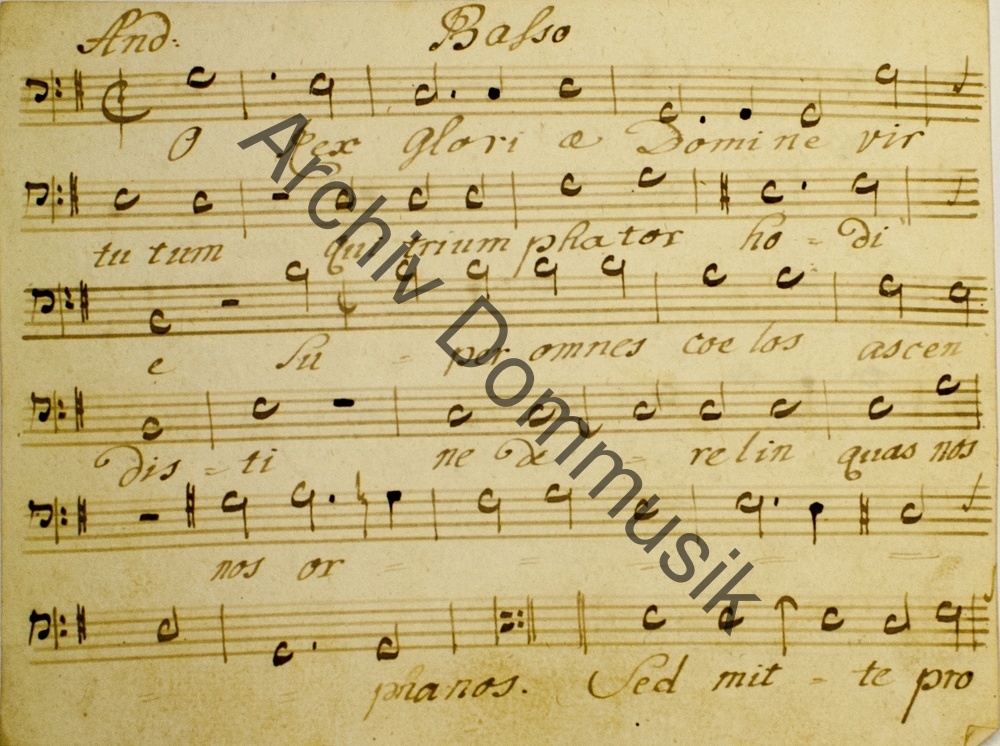 And: Basso
O Rex glori æ Domine vir
tu tum qui trium phator ho - di
e Su - per omnes coe los ascen
dis - ti ne de - relin quas nos
nos or - - - - -
- - phanos. Sed mit - te pro
Archiv Dommusik